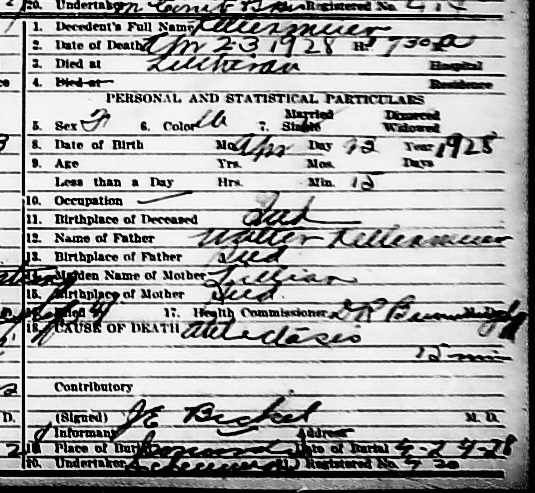 20. Undertaker Registered No.
1. Decedent's Full Name Kellermeier
2. Date of Death Apr 23 1928 Hr 730 a
3. Died at Lutheran Hospital
4. Died at Residence
PERSONAL AND STATISTICAL PARTICULARS
Married Divorced
5. Sex F 6. Color W 7. Single Widowed
8. Date of Birth Mo. Apr Day Year 1928
9. Age Yrs. Mos. Days
Less than a Day Hrs. Min. 15
10. Occupation
11. Birthplace of Deceased Ind
12. Name of Father Walter Kellermeier
13. Birthplace of Father Ind
14. Maiden Name of Mother Lillian
15. Birthplace of Mother Ind.
16. Filed 17. Health Commissioner
18. CAUSE OF DEATH Atelectasis
15 min
Contributory
(Signed) J E Bickel M. D.
Informant Address
19. Place of Burial Date of Burial 4-24-28
20. Undertaker Registered No. 420